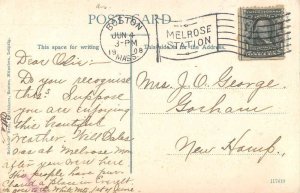 POST CARD
BOSTON
JUN 4
3-PM
1908
MASS.
MELROSE
STATION
This space for writing.
This side is for the Address.
Dear Osie:
Do you recognize
this? Suppose
you are enjoying
this beautiful
weather. Will Bates
was at Melrose
after you were here
The people have pur-
a place in
Mrs. J. O. George
Gorham
New Hamp.
117619